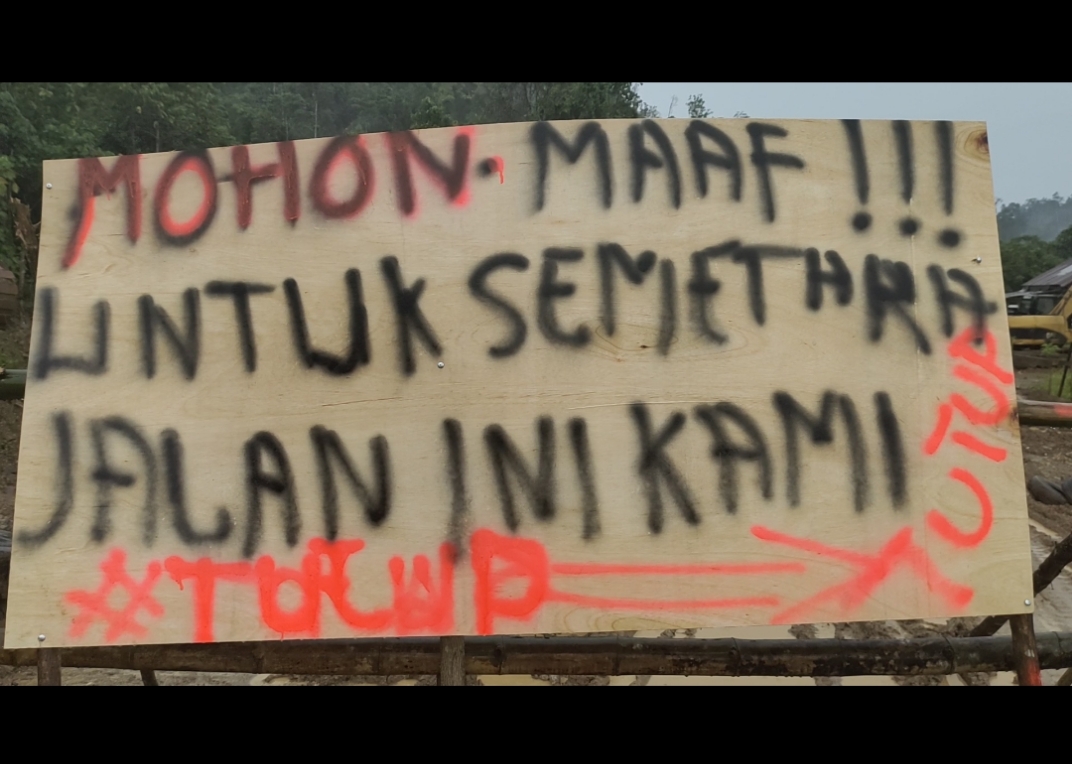 MOHON. MAAF !!!
UNTUK SEMETHRA
JALAN INI KAMI
UTUP